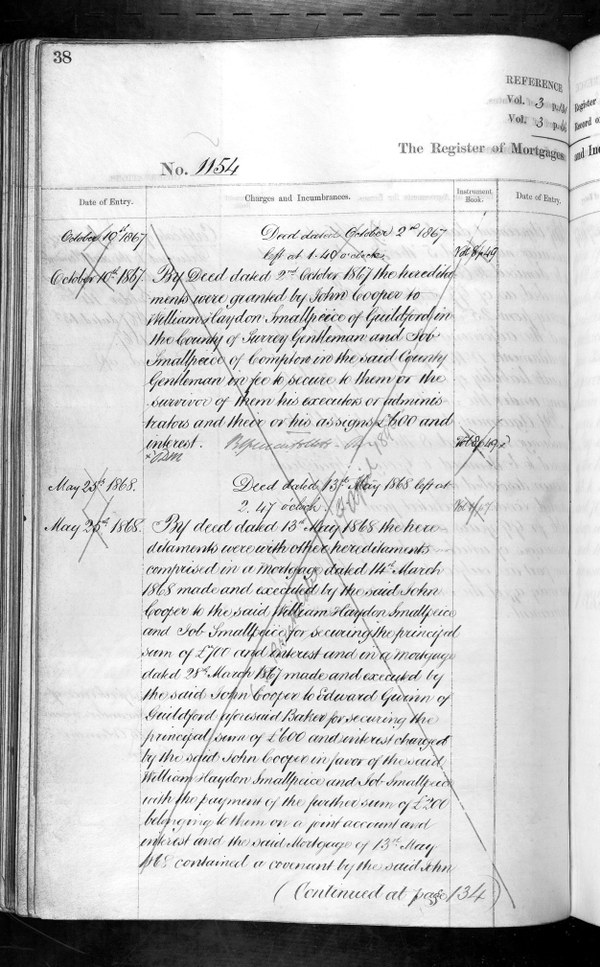 38
REFERENCE
Vol. 3 p.
Vol. 3 p.
The Register of Mortgages
and In
Register
Record of
No. 1154
Date of Entry.
Charges and Incumbrances.
Instrument Book.
Date of Entry.
October 10th 1867
Deed dated October 2nd 1867
left at 1.40 o'clock
Vol 8 p 49
October 10th 1867.
By Deed dated 2nd October 1867 the heredita
ments were granted by John Cooper to
William Haydon Smallpeice of Guildford in
the County of Surrey Gentleman and Job
Smallpeice of Compton in the said County
Gentleman in fee to secure to them or the
survivor of them his executors or adminis
trators and their or his assigns £600 and
interest.
Vol 8 p 49
May 25th 1868.
Deed dated 13th May 1868 left at
2.47 o'clock
Vol
May 25th 1868.
By deed dated 13th May 1868 the here
ditaments were with other hereditaments
comprised in a mortgage dated 14th March
1868 made and executed by the said John
Cooper to the said William Haydon Smallpeice
and Job Smallpeice for securing the principal
sum of £700 and interest and in a mortgage
dated 28th March 1867 made and executed by
the said John Cooper to Edward Gwinn of
Guildford aforesaid Baker for securing the
principal sum of £600 and interest charged
by the said John Cooper in favor of the said
William Haydon Smallpeice and Job Smallpeice
with the payment of the further sum of £200
belonging to them on a joint account and
interest and the said Mortgage of 13th May
1868 contained a covenant by the said John
(Continued at page 134)